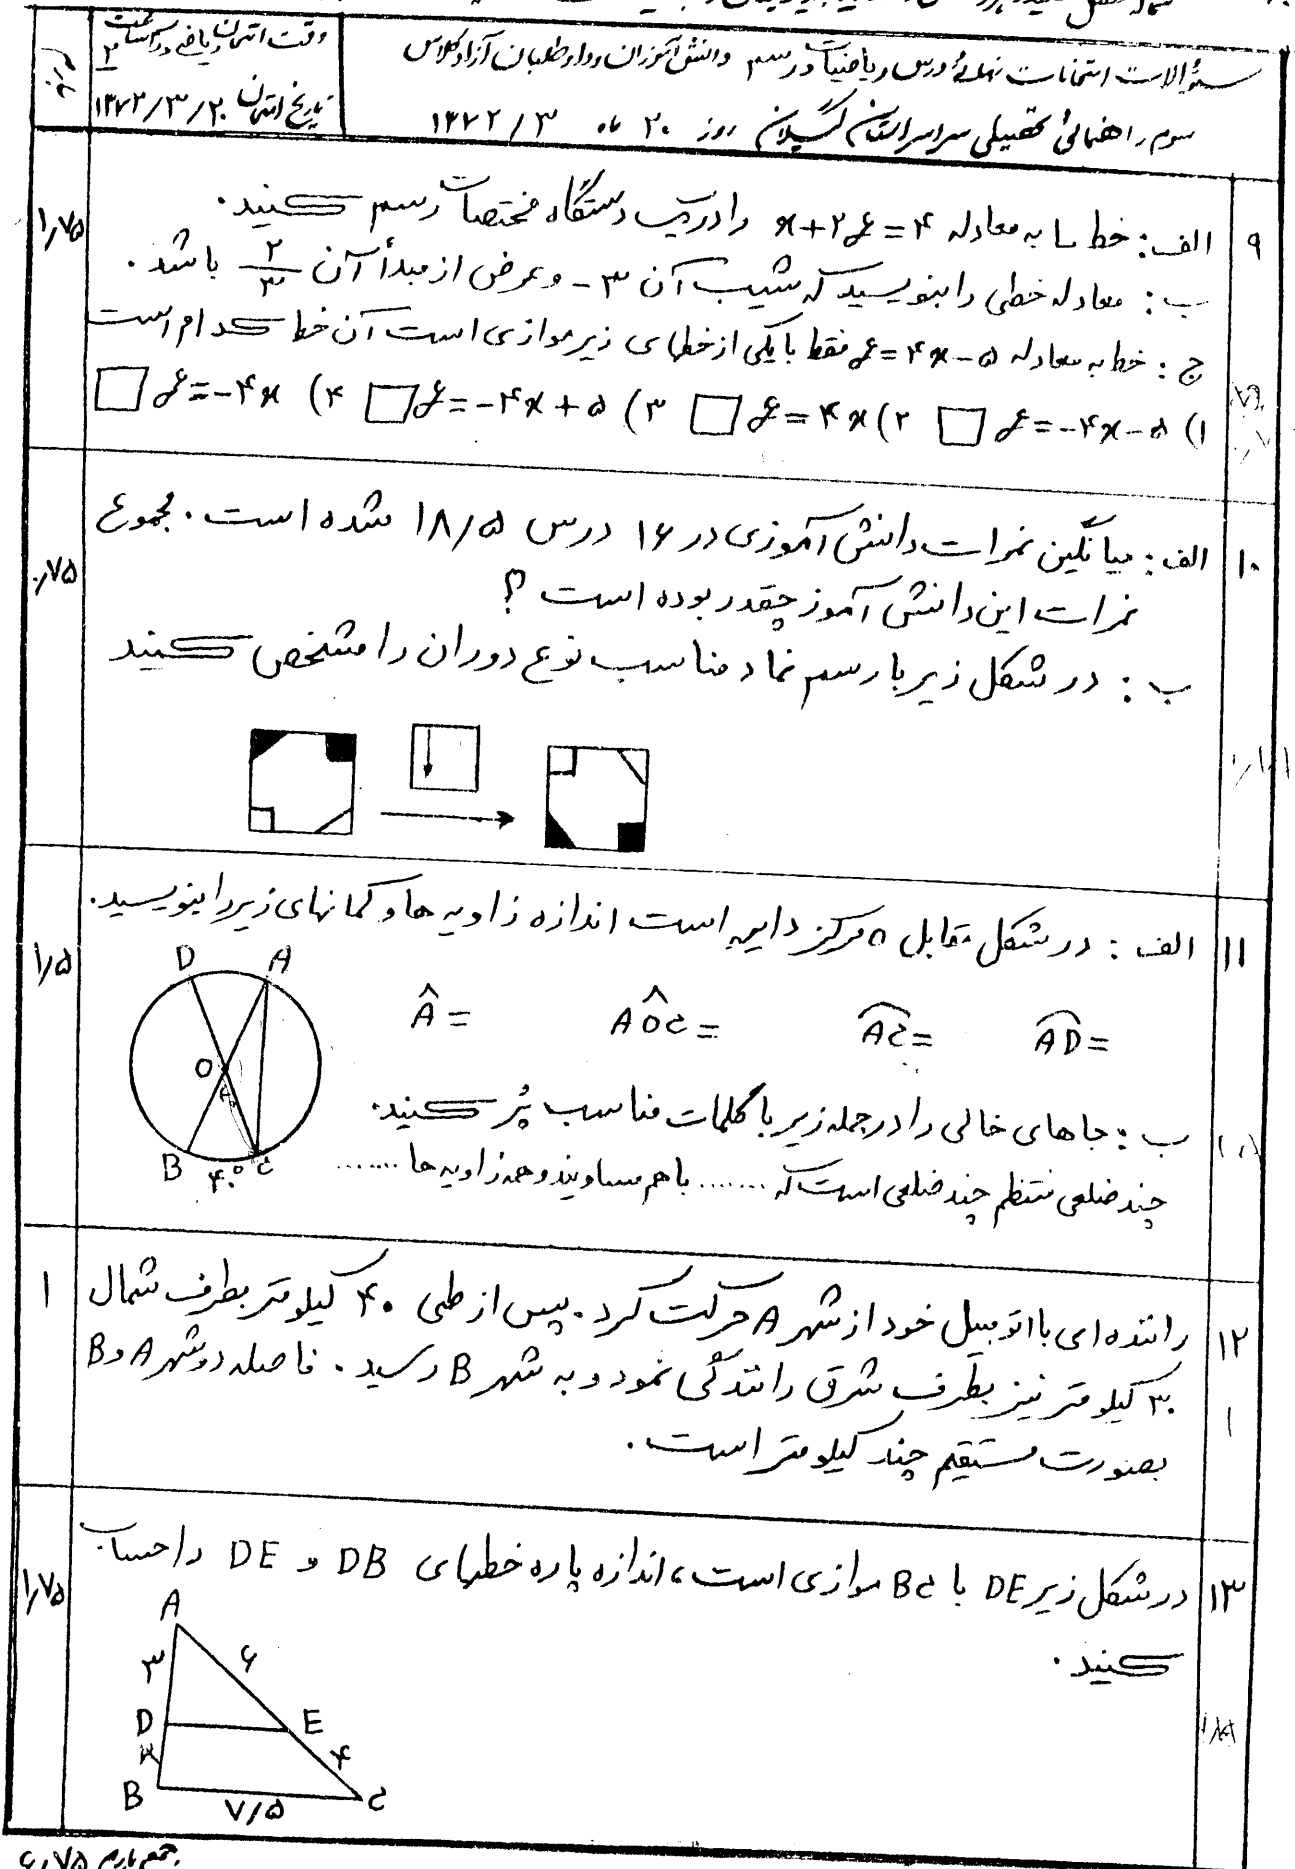 سؤالات امتحانات نهائی درس ریاضیات و رسم دانش آموزان و داوطلبان آزاد کلاس
سوم راهنمائی تحصیلی سراسر استان گیلان روز ۲۰ ماه ۳ / ۱۳۷۲
وقت امتحان ریاضی و رسم ۲ ساعت
تاریخ امتحان ۱۳۷۲/۳/۲۰
۹ الف: خط L به معادله x+۲y=۴ را در یک دستگاه مختصات رسم کنید. ۱/۷۵
ب: معادله خطی را بنویسید که شیب آن ۳- و عرض از مبدأ آن ۲/۳ باشد.
ج: خط به معادله y=۴x-۵ فقط با یکی از خطهای زیر موازی است آن خط کدام است
۱) y=-۴x-۵ □ ۲) y=۴x □ ۳) y=-۴x+۵ □ ۴) y=-۴x □
۱۰ الف: میانگین نمرات دانش آموزی در ۱۶ درس ۱۸/۵ شده است. مجموع ۰/۷۵
نمرات این دانش آموز چقدر بوده است؟
ب: در شکل زیر با رسم نماد مناسب نوع دوران را مشخص کنید
۱۱ الف: در شکل مقابل O مرکز دایره است اندازه زاویه ها و کمانهای زیر را بنویسید. ۱/۵
AD= AC= AOC= A=
D A
O
B ۴۰° C
ب: جاهای خالی را در جمله زیر با کلمات مناسب پُر کنید.
چند ضلعی منتظم چند ضلعی است که ....... با هم مساویند و همه زاویه ها .......
۱۲ راننده ای با اتومبیل خود از شهر A حرکت کرد. پس از طی ۴۰ کیلومتر بطرف شمال ۱
۳۰ کیلومتر نیز بطرف شرق رانندگی نمود و به شهر B رسید. فاصله دو شهر A و B
بصورت مستقیم چند کیلومتر است.
۱۳ در شکل زیر DE با BC موازی است، اندازه پاره خطهای DB و DE را حساب ۱/۷۵
کنید.
A
۳ ۶
D E
x ۴
B ۷/۵ C
جمع بارم ۶/۷۵